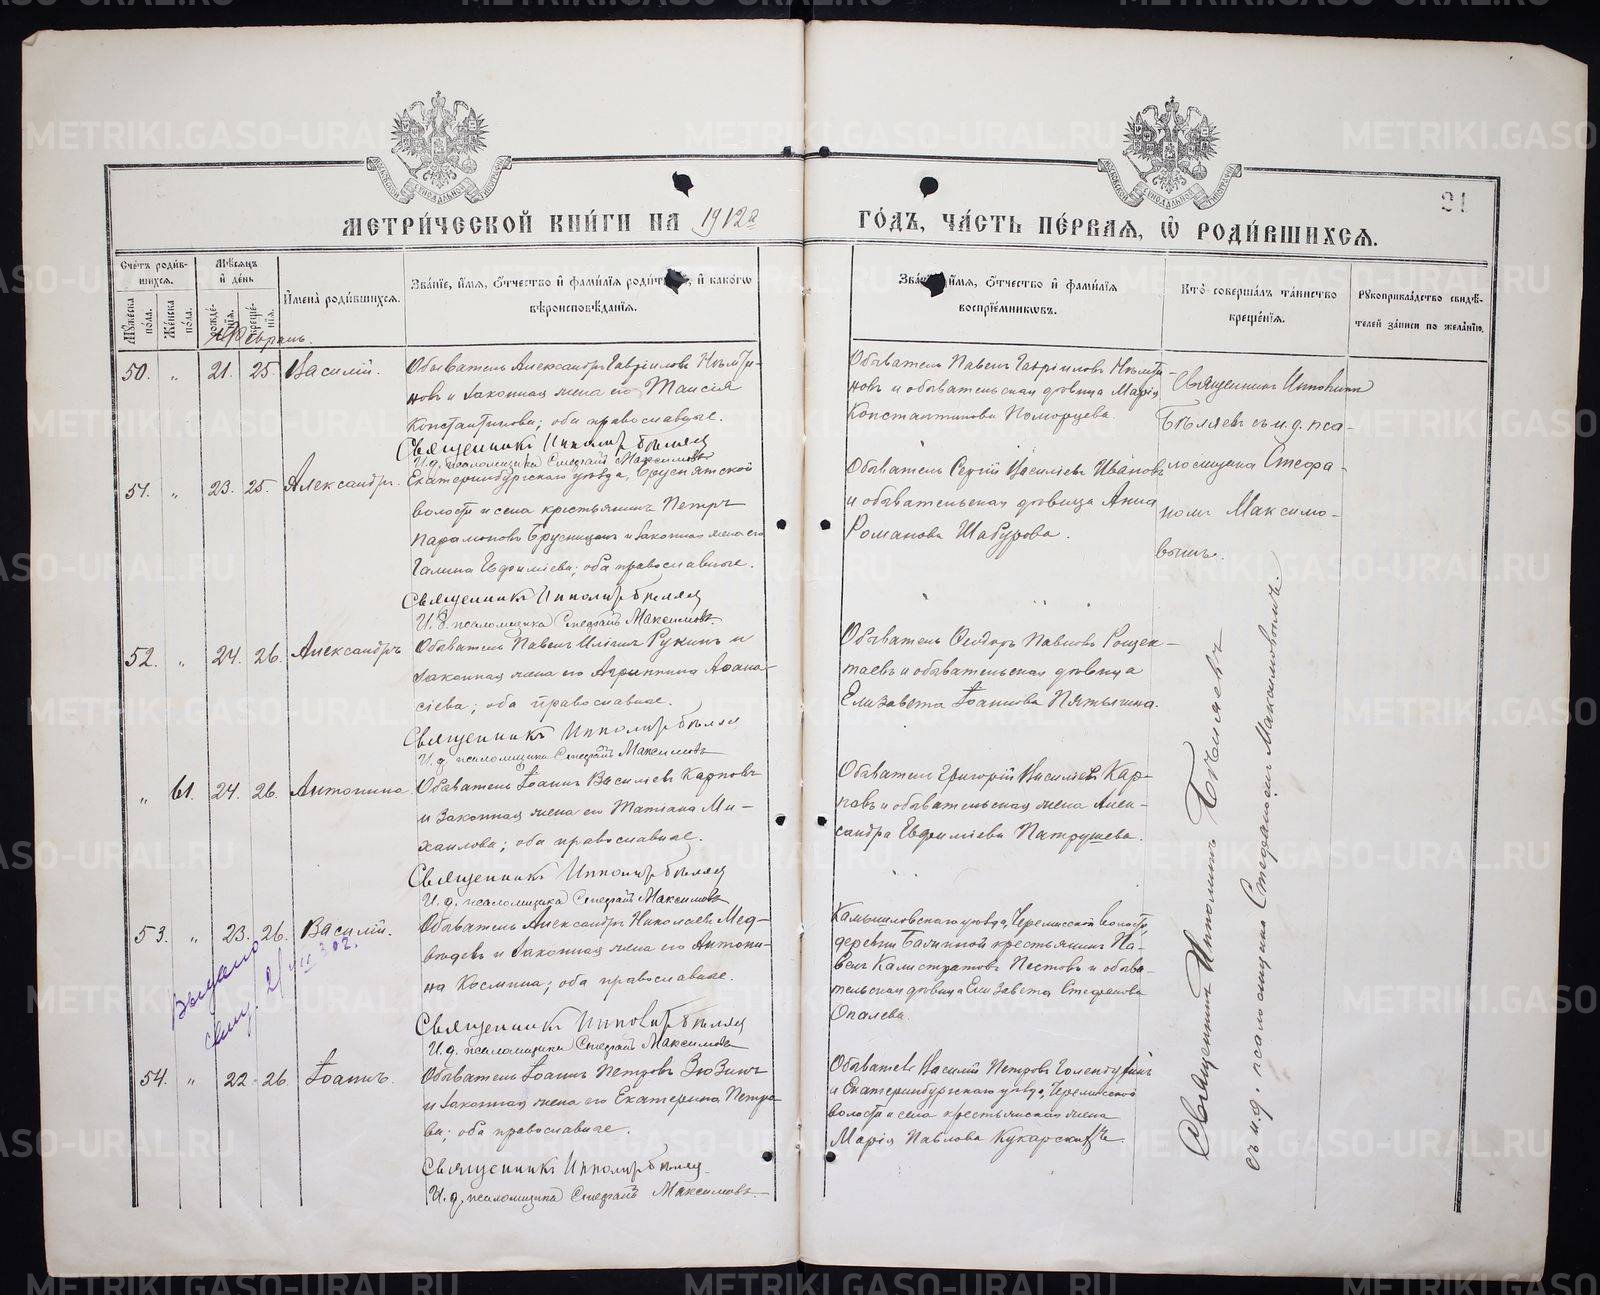 МЕТРИ́ЧЕСКОЙ КНИ́ГИ НА 1912й
ГО́ДЪ, ЧА́СТЬ ПЕ́РВАЯ, Ѽ РОДИ́ВШИХСЯ.
21
Сче́тъ роди́в-
шихся.
Му́жеска по́ла.
Же́нска по́ла.
Мѣ́сяцъ
и҆ де́нь
рожде́-
нїя.
креще́-
нїя.
И҆мена̀ роди́вшихся.
Зва́нїе, и҆́мя, ѻ҆́тчество и҆ фами́лїя роди́т, и҆ како́гѡ
вѣроисповѣ́данїя.
Зва́ и҆́мя, ѻ҆́тчество и҆ фами́лїя
воспрїе́мникѡвъ.
Кто̀ соверша́лъ та́инство
креще́нїя.
Рꙋкоприкла́дство свидѣ́-
телей за́писи по жела́нїю.
Февраль.
50. " 21. 25. Василій.
Обыватель Александръ Гавріиловъ Нѣмти-
новъ и законная жена его Таисія
Константинова; оба православные.
Священникъ Ипполитъ Бѣляев
И. д. псаломщика Стефанъ Максимовъ
Обыватель Павелъ Гавріиловъ Нѣмти-
новъ и обывательская дѣвица Марія
Константинова Поморцева.
Священникъ Ипполитъ
Бѣляевъ съ и. д. пса-
ломщика Стефа-
номъ Максимо-
вымъ.
51. " 23. 25. Александръ.
Екатеринбургскаго уѣзда, Бруснятской
волости и села крестьянинъ Петръ
Парамоновъ Брусницынъ и законная жена его
Галина Евфиміева; оба православные.
Священникъ Ипполитъ Бѣляев
И. д. псаломщика Стефанъ Максимовъ
Обыватель Сергій Василіевъ Ивановъ
и обывательская дѣвица Анна
Романова Шабурова.
52. " 24. 26. Александръ
Обыватель Павелъ Иліинъ Рукинъ и
законная жена его Агриппина Афана-
сіева; оба православные.
Священникъ Ипполитъ Бѣляев
И. д. псаломщика Стефанъ Максимовъ
Обыватель Ѳеодоръ Павловъ Рощек-
таевъ и обывательская дѣвица
Елизавета Іоаннова Пятыгина.
" 61. 24. 26. Антонина
Обыватель Іоаннъ Василіевъ Карповъ
и законная жена его Татіана Ми-
хаилова; оба православные.
Священникъ Ипполитъ Бѣляев
И. д. псаломщика Стефанъ Максимовъ
Обыватель Григорій Василіевъ Кар-
повъ и обывательская жена Алек-
сандра Евфиміева Патрушева.
53. " 23. 26. Василій.
Обыватель Александръ Николаевъ Мед-
вѣдевъ и законная жена его Антони-
на Космина; оба православные.
Священникъ Ипполитъ Бѣляев
И. д. псаломщика Стефанъ Максимовъ
Камышловскаго уѣзда, Черемисской волости,
деревни Баллиной крестьянинъ Па-
велъ Калистратовъ Пестовъ и обыва-
тельская дѣвица Елизавета Стефанова
Опалева.
Выдано
54. " 22. 26. Іоаннъ.
Обыватель Іоаннъ Петровъ Зюзинъ
и законная жена его Екатерина Петро-
ва; оба православные.
Священникъ Ипполитъ Бѣляев
И. д. псаломщика Стефанъ Максимовъ
Обыватель Василій Петровъ Голендухинъ
и Екатеринбургскаго уѣзда, Черемисской
волости и села крестьянская жена
Марія Павлова Кукарскихъ.
Священникъ Ипполитъ Бѣляевъ
съ и. д. псаломщика Стефаномъ Максимовымъ.
METRIKI.GASO-URAL.RU